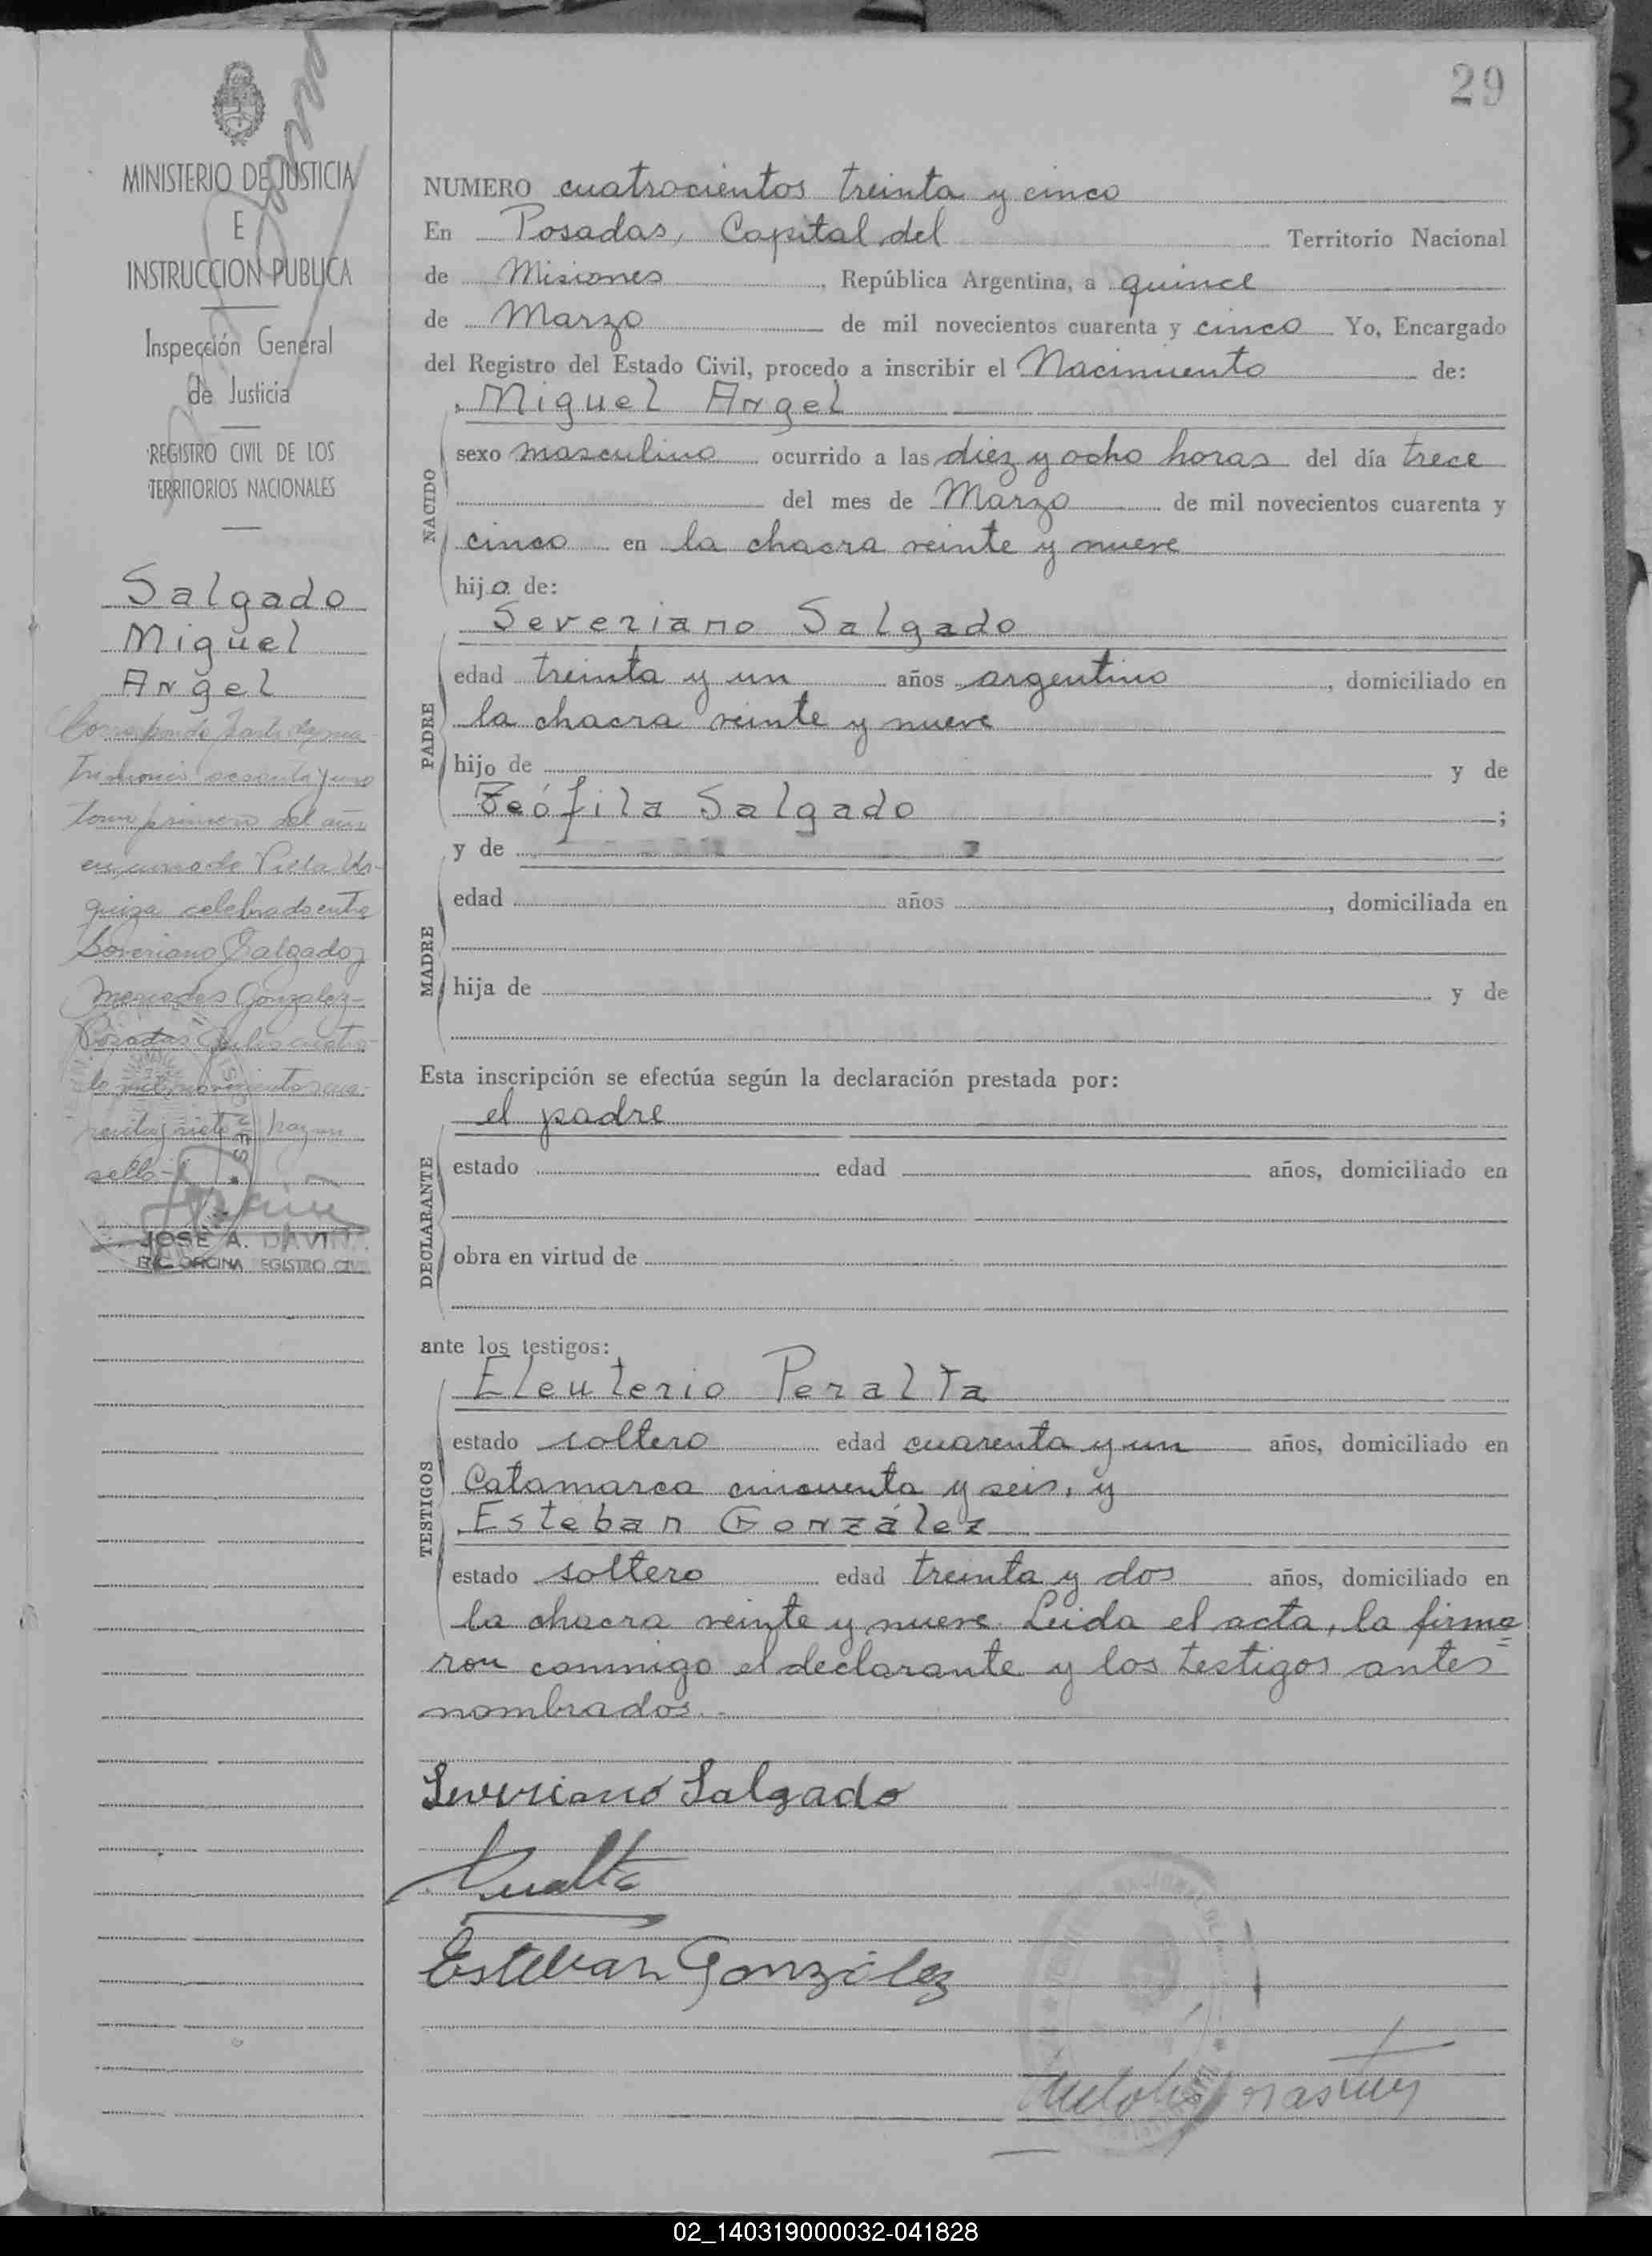 29
MINISTERIO DE JUSTICIA
E
INSTRUCCION PUBLICA
Inspección General
de Justicia
REGISTRO CIVIL DE LOS
TERRITORIOS NACIONALES
Salgado
Miguel
Angel
Corresponde
trimonio sesenta y uno
tomo primero del año
en curso de Villa Ur-
quiza celebrado entre
Severiano Salgado y
Mercedes Gonzalez-
Posadas Julio cuatro
de mil novecientos cua-
renta y siete hay un
sello-
JOSÉ A. DAVIÑA
ENC. OFICINA REGISTRO CIVIL
NUMERO cuatrocientos treinta y cinco
En Posadas, Capital del Territorio Nacional
de Misiones, República Argentina, a quince
de Marzo de mil novecientos cuarenta y cinco Yo, Encargado
del Registro del Estado Civil, procedo a inscribir el Nacimiento de:
Miguel Angel
NACIDO
sexo masculino ocurrido a las diez y ocho horas del día trece
del mes de Marzo de mil novecientos cuarenta y
cinco en la chacra veinte y nueve
hijo de:
Severiano Salgado
PADRE
edad treinta y un años argentino, domiciliado en
la chacra veinte y nueve
hijo de y de
Teófila Salgado ;
y de
MADRE
edad años , domiciliada en
hija de y de
Esta inscripción se efectúa según la declaración prestada por:
el padre
DECLARANTE
estado edad años, domiciliado en
obra en virtud de
ante los testigos:
Eleuterio Peralta
TESTIGOS
estado soltero edad cuarenta y un años, domiciliado en
Catamarca cincuenta y seis, y
Esteban González
estado soltero edad treinta y dos años, domiciliado en
la chacra veinte y nueve. Leida el acta, la firma=
ron conmigo el declarante y los testigos antes
nombrados.-
Severiano Salgado
Peralta
Esteban González
02_140319000032-041828